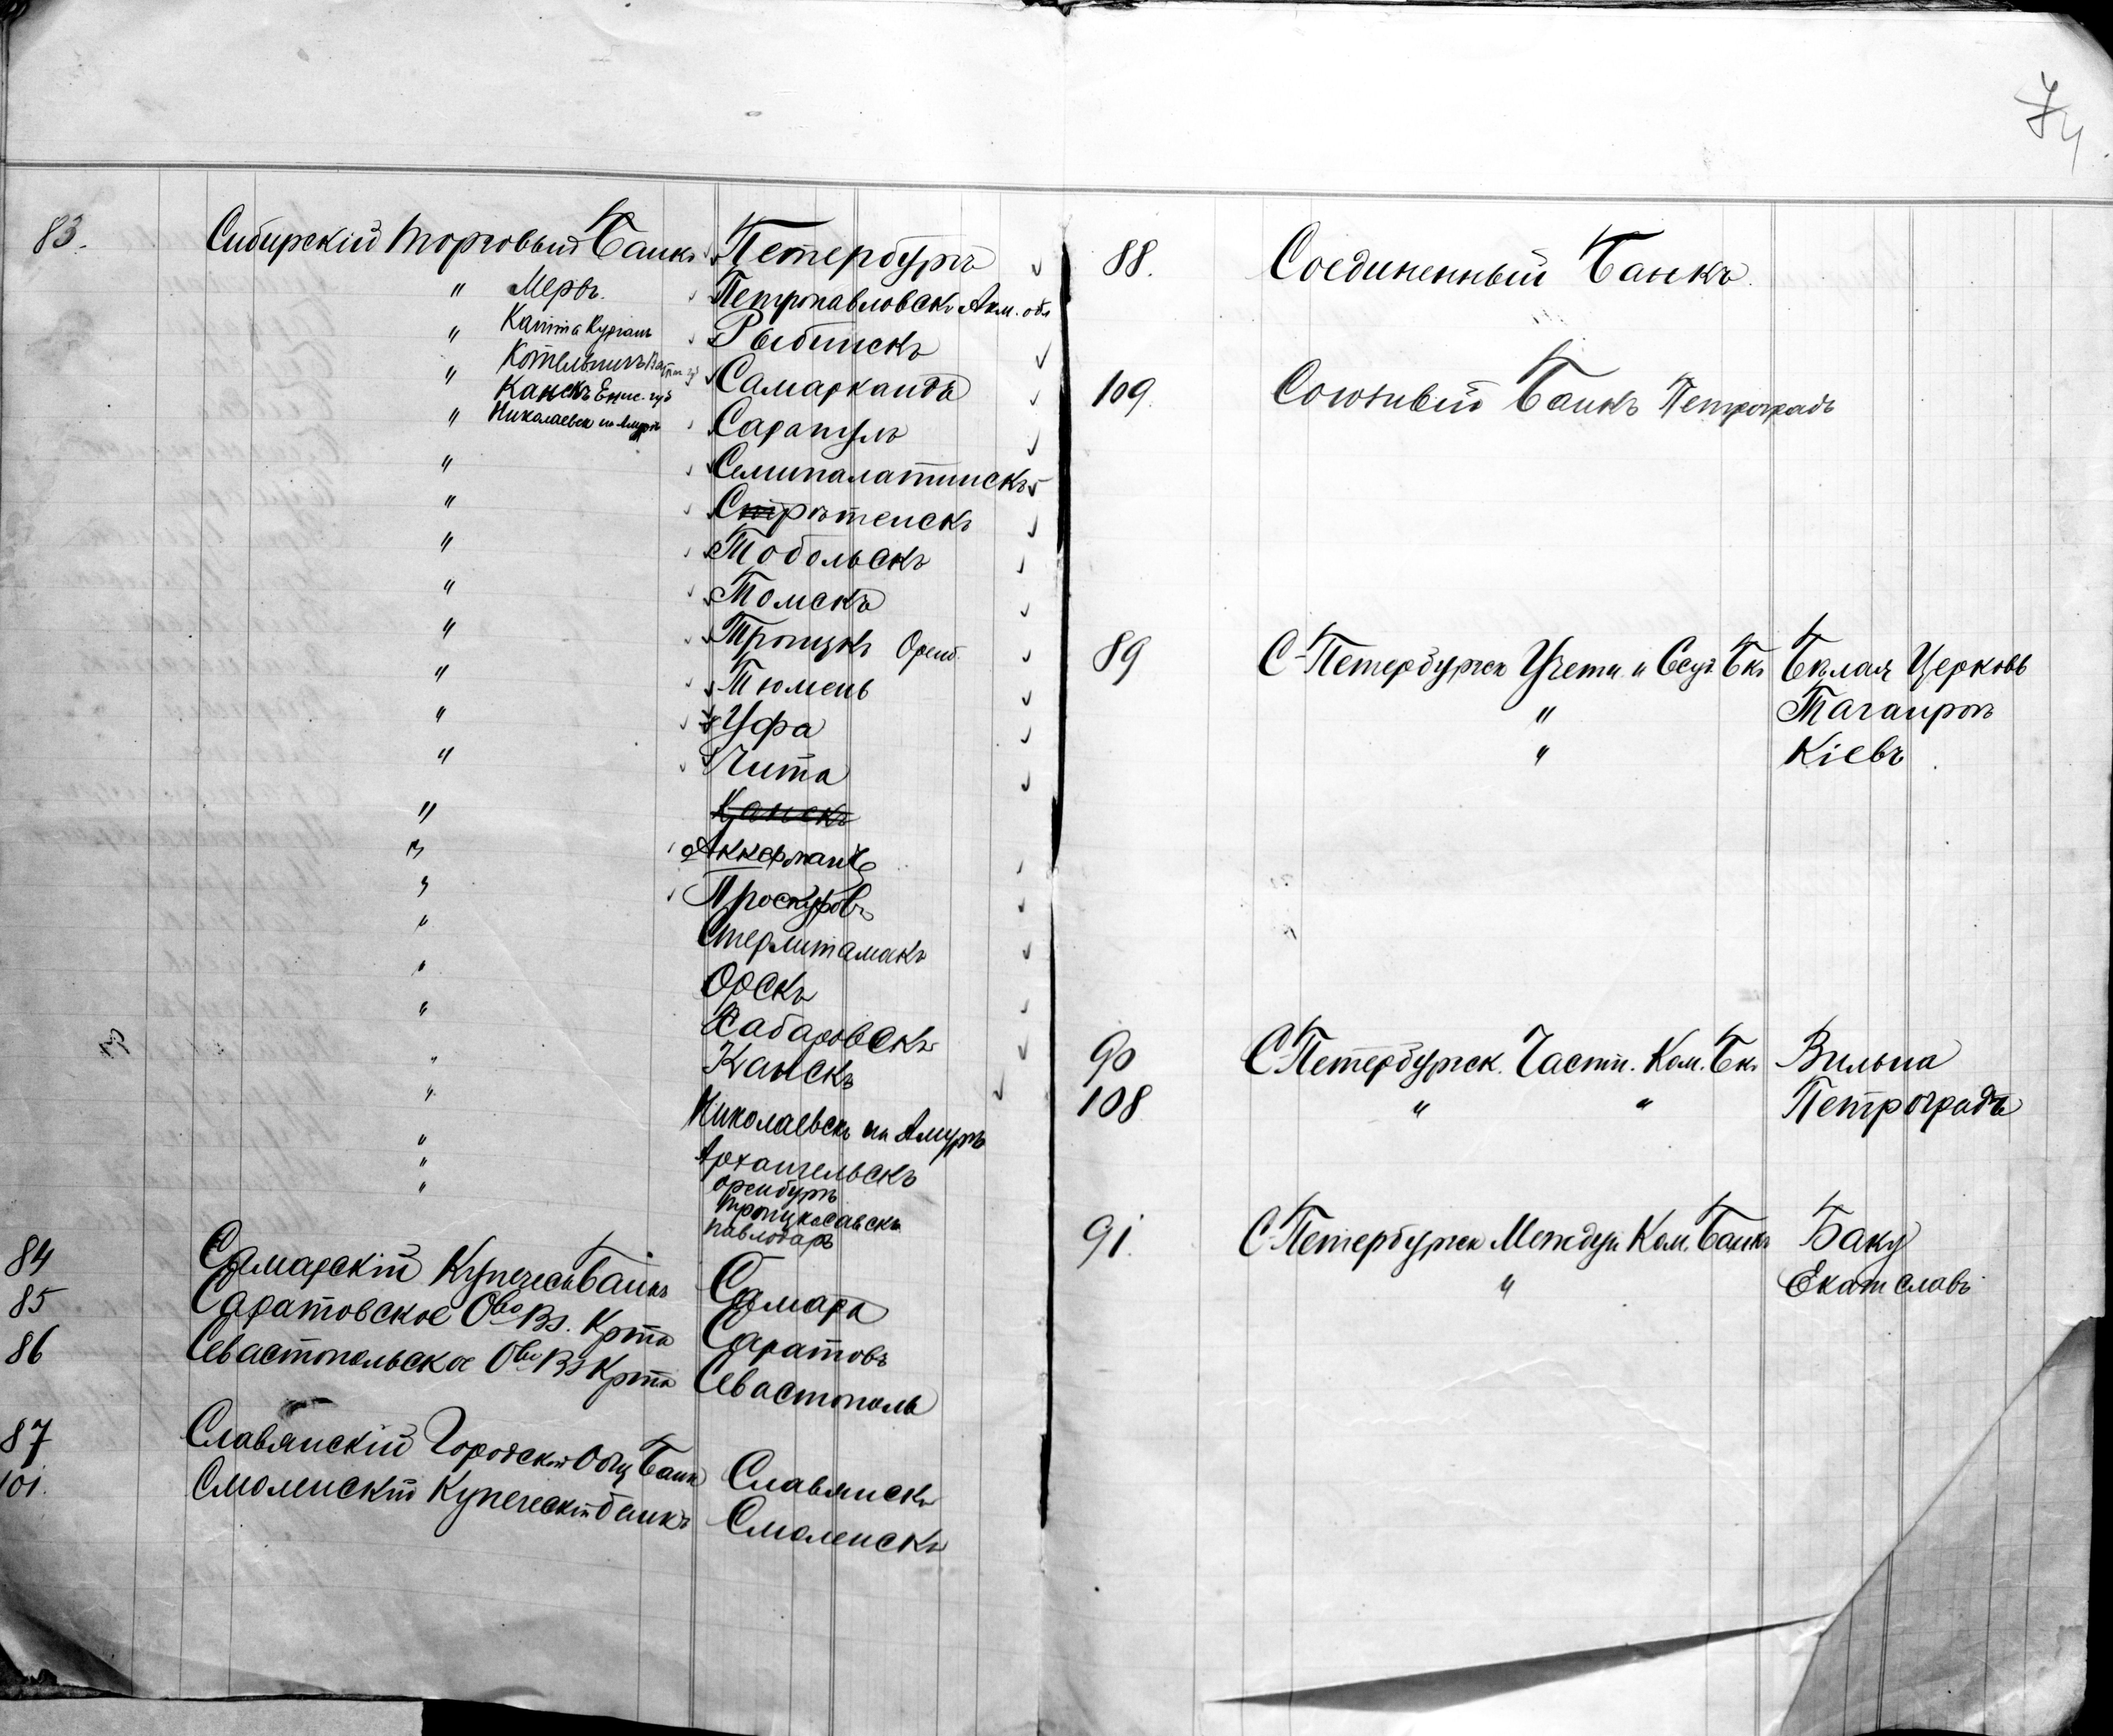 74
83. Сибирскій торговый Банкъ Петербургъ
" Мервъ. Петропавловскъ Акм. обл
" Катта Курганъ Рыбинскъ
" Котельничъ Самаркандъ
Канскъ Енис. губ
" Николаевск на Амурѣ Сарапулъ
" Семипалатинскъ
" Срѣтенскъ
" Тобольскъ
" Томскъ
" Троицкъ Оренб.
" Тюмень
" Уфа
" Чита
" Канскъ
" Аккерманъ
" Проскуровъ
" Стерлитамакъ
" Орскъ
" Хабаровскъ
" Канскъ
" Николаевскъ на Амурѣ
" Архангельскъ
" Оренбургъ
" Троицкосавскъ
Павлодаръ
84 Самарскій Купеческ Банкъ Самара
85 Саратовское Обво Вз. Крта Саратовъ
86 Севастопольское Обво Вз Крта Севастополь
87 Славянскій Городской Общ Банк Славянскъ
101. Смоленскій Купеческій банкъ Смоленскъ
88. Соединенный Банкъ.
109. Союзный Банкъ Петроградъ
89 С-Петербургск Учетн. и Ссуд Бкъ Бѣлая Церковь
" Таганрогъ
" Кіевъ
90 С-Петербургск. Частн. Ком. Бкъ Вильна
108 " " Петроградъ
91. С-Петербургск Междун. Ком. Банкъ Баку
" Екатеславъ